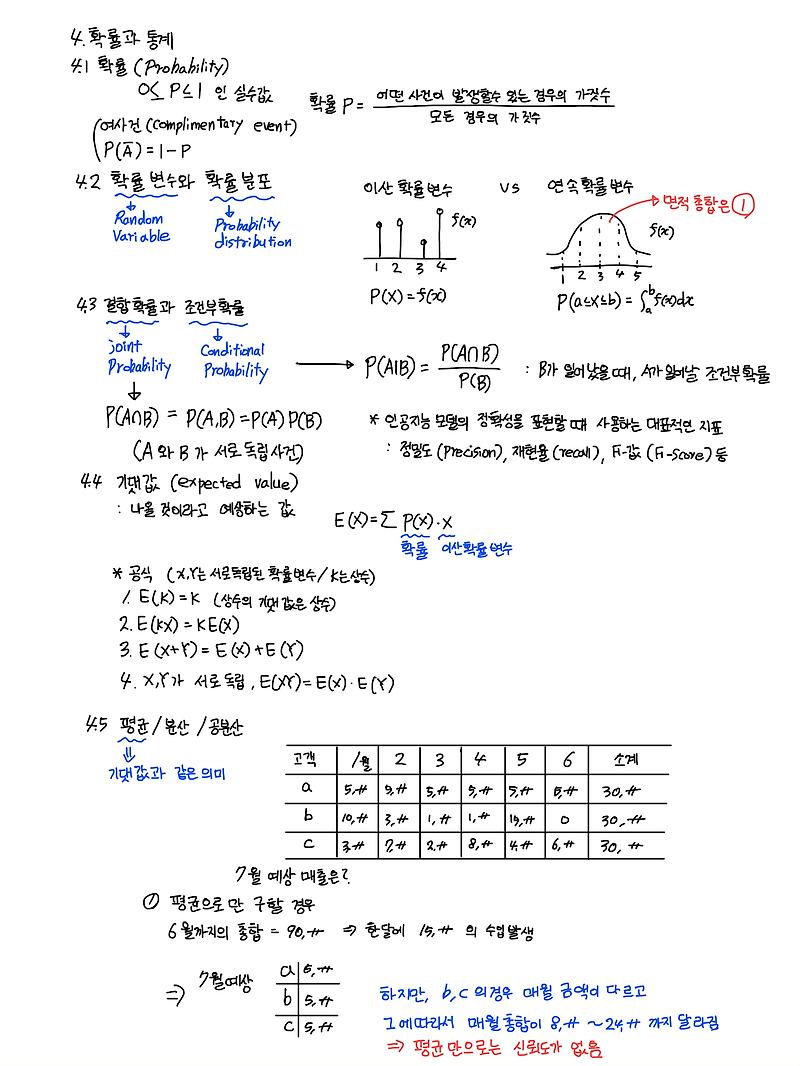 4. 확률과 통계
4.1 확률 (Probability)
0≤ P≤1 인 실수값
확률 P = 어떤 사건이 발생할수 있는 경우의 가짓수
모든 경우의 가짓수
여사건 (complimentary event)
P(A̅) = 1-P
4.2 확률 변수와 확률 분포
이산 확률변수 vs 연속 확률변수
Random Variable
Probability distribution
f(x)
1 2 3 4
P(X) = f(x)
면적 총합은 ①
f(x)
1 2 3 4 5
P(a≤x≤b) = ∫ₐᵇ f(x)dx
4.3 결합확률과 조건부확률
joint Probability
Conditional Probability
P(A|B) = P(A∩B)
P(B)
: B가 일어났을때, A가 일어날 조건부확률
P(A∩B) = P(A,B) = P(A) P(B)
(A 와 B 가 서로 독립사건)
* 인공지능 모델의 정확성을 표현할 때 사용하는 대표적인 지표
: 정밀도 (Precision), 재현율 (recall), F1-값 (F1-score) 등
4.4 기댓값 (expected value)
: 나올 것이라고 예상하는 값
E(X) = Σ P(x)·x
확률 이산확률변수
* 공식 (X,Y는 서로독립된 확률변수 / K는상수)
1. E(K) = K (상수의 기댓값은 상수)
2. E(KX) = KE(X)
3. E(X+Y) = E(X) + E(Y)
4. X,Y가 서로 독립, E(XY) = E(X)·E(Y)
4.5 평균 / 분산 / 공분산
기댓값과 같은의미
고객 1월 2 3 4 5 6 소계
a 5,# 5,# 5,# 5,# 5,# 5,# 30,#
b 10,# 3,# 1,# 1,# 15,# 0 30,#
c 3,# 7,# 2,# 8,# 4,# 6,# 30,#
7월 예상 매출은?
① 평균으로만 구할 경우
6월까지의 총합 = 90,# ⇒ 한달에 15,# 의 수입발생
⇒ 7월예상
a 5,#
b 5,#
c 5,#
하지만, b,c 의경우 매월 금액이 다르고
그에따라서 매월총합이 8,# ~ 24,# 까지 달라짐
⇒ 평균만으로는 신뢰도가 없음